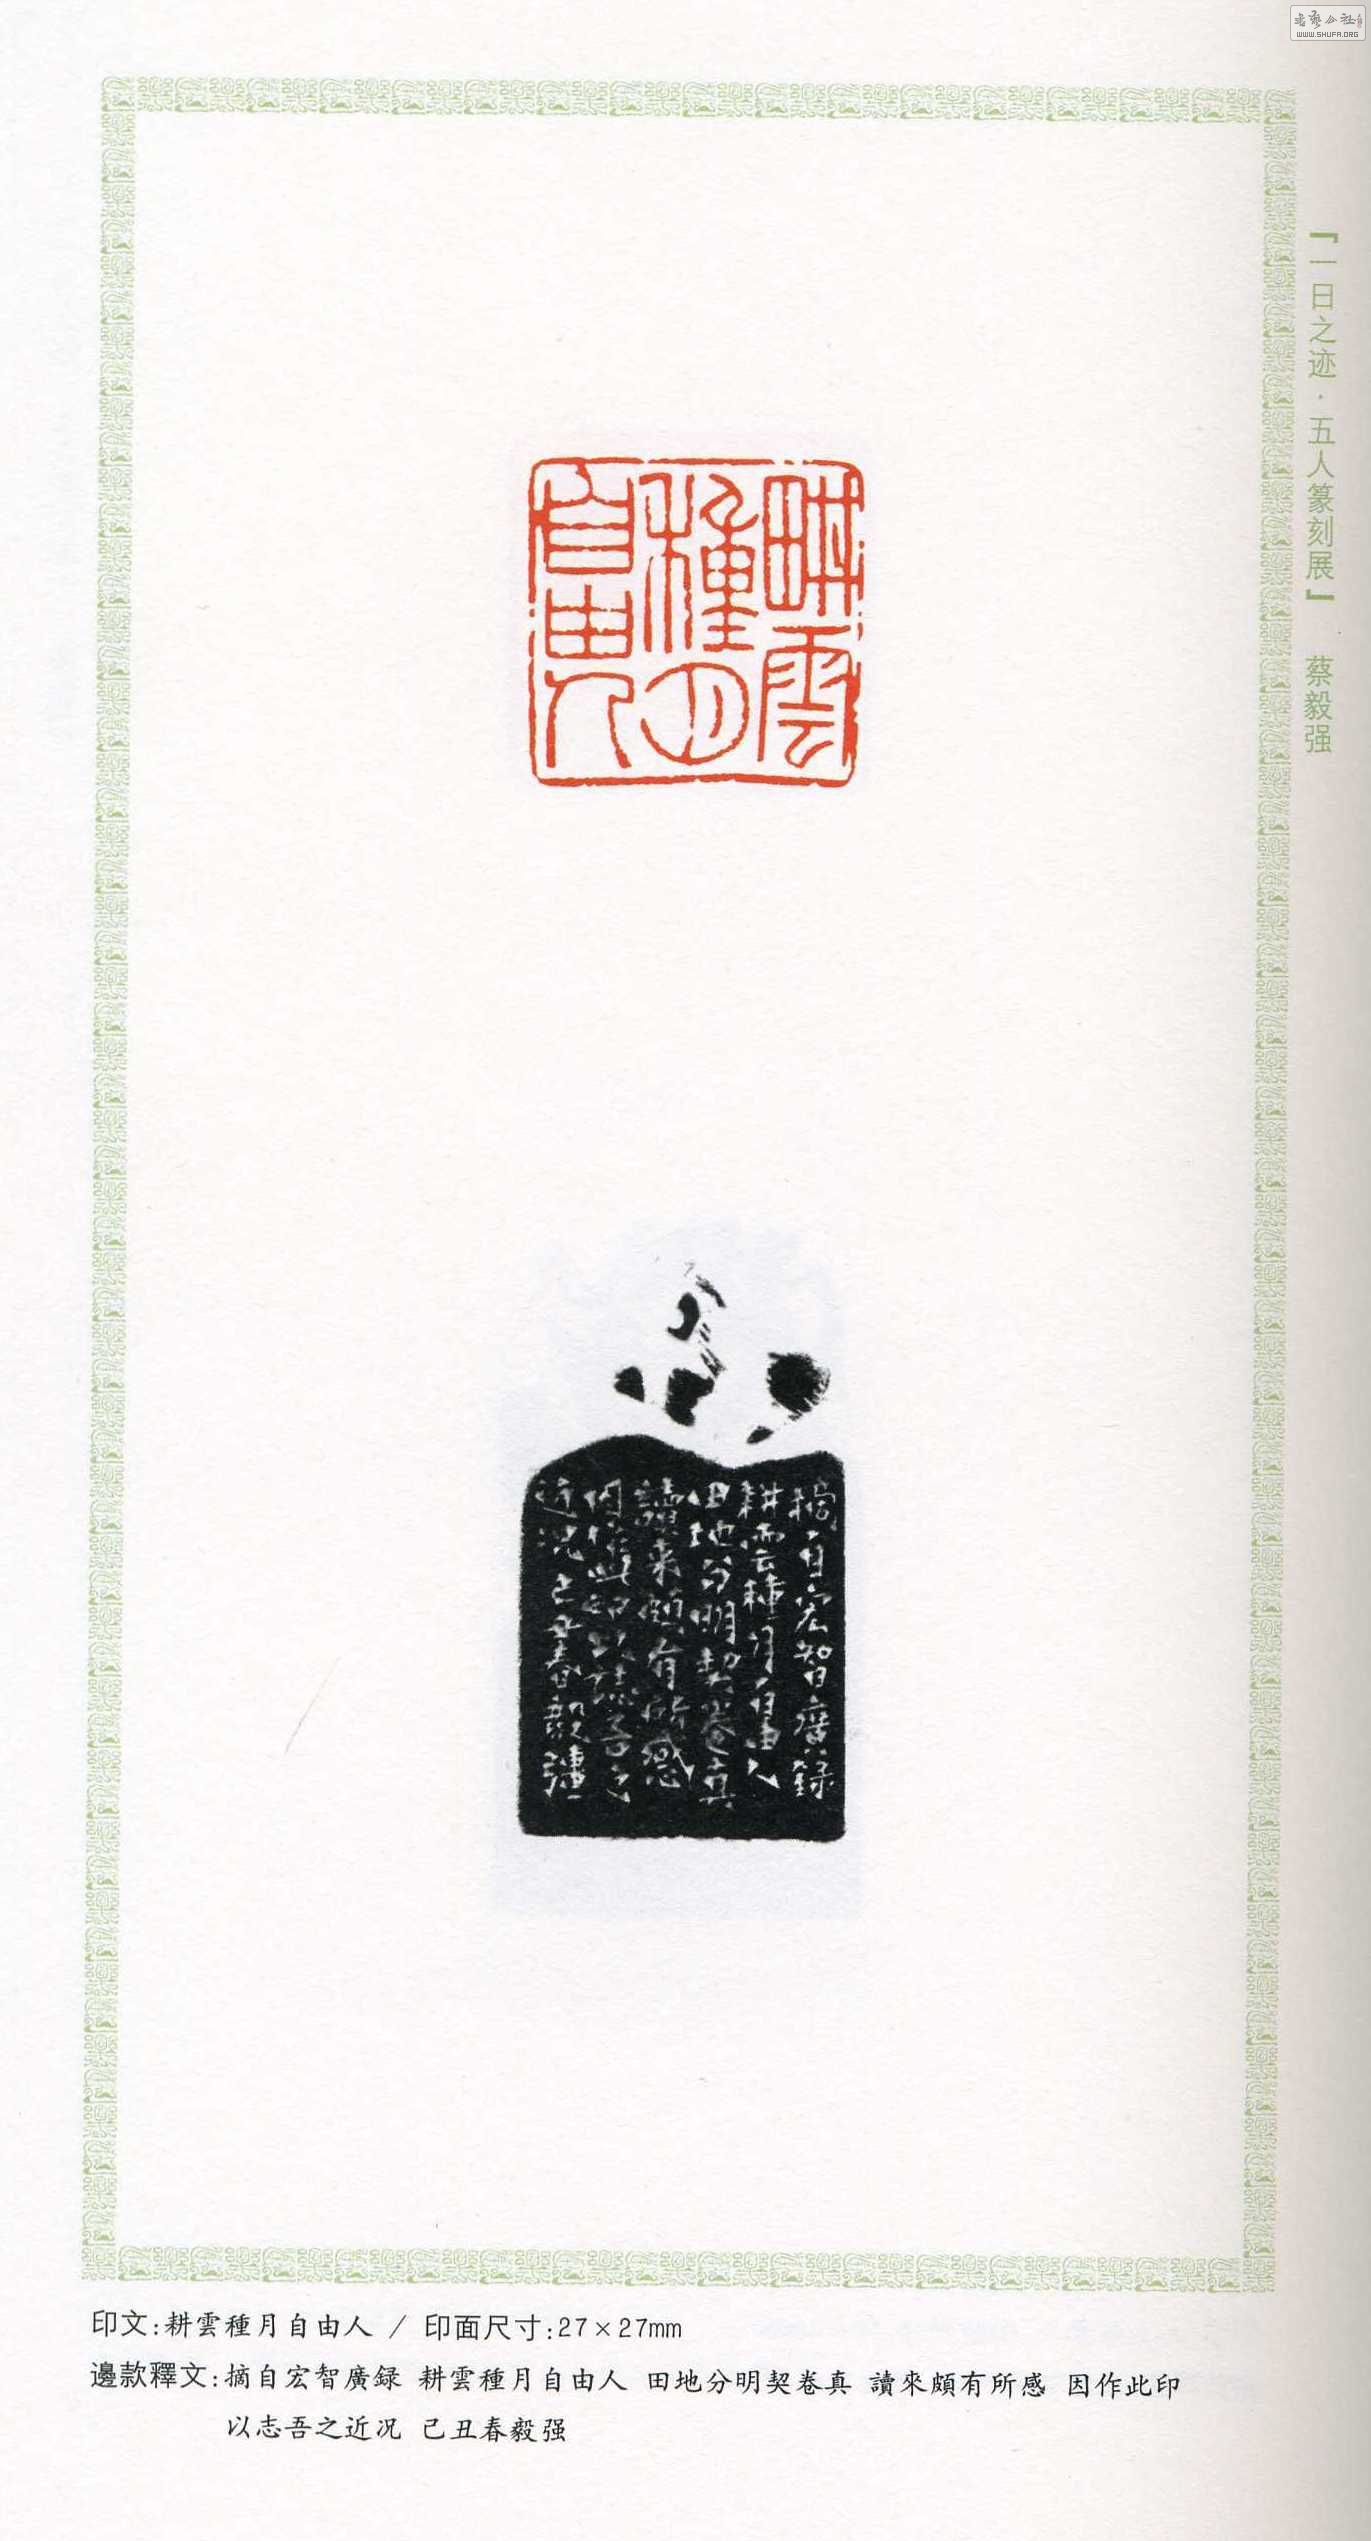 书艺公社
WWW.SHUFA.ORG
『一日之迹·五人篆刻展』 蔡毅强
耕雲
種月
自由人
摘自宏智廣録
耕雲種月自由人
田地分明契卷真
讀來頗有所感
因作此印以志吾之
近况己丑春毅彊
印文:耕雲種月自由人 / 印面尺寸:27×27mm
邊款釋文:摘自宏智廣録 耕雲種月自由人 田地分明契卷真 讀來頗有所感 因作此印
以志吾之近况 己丑春毅强